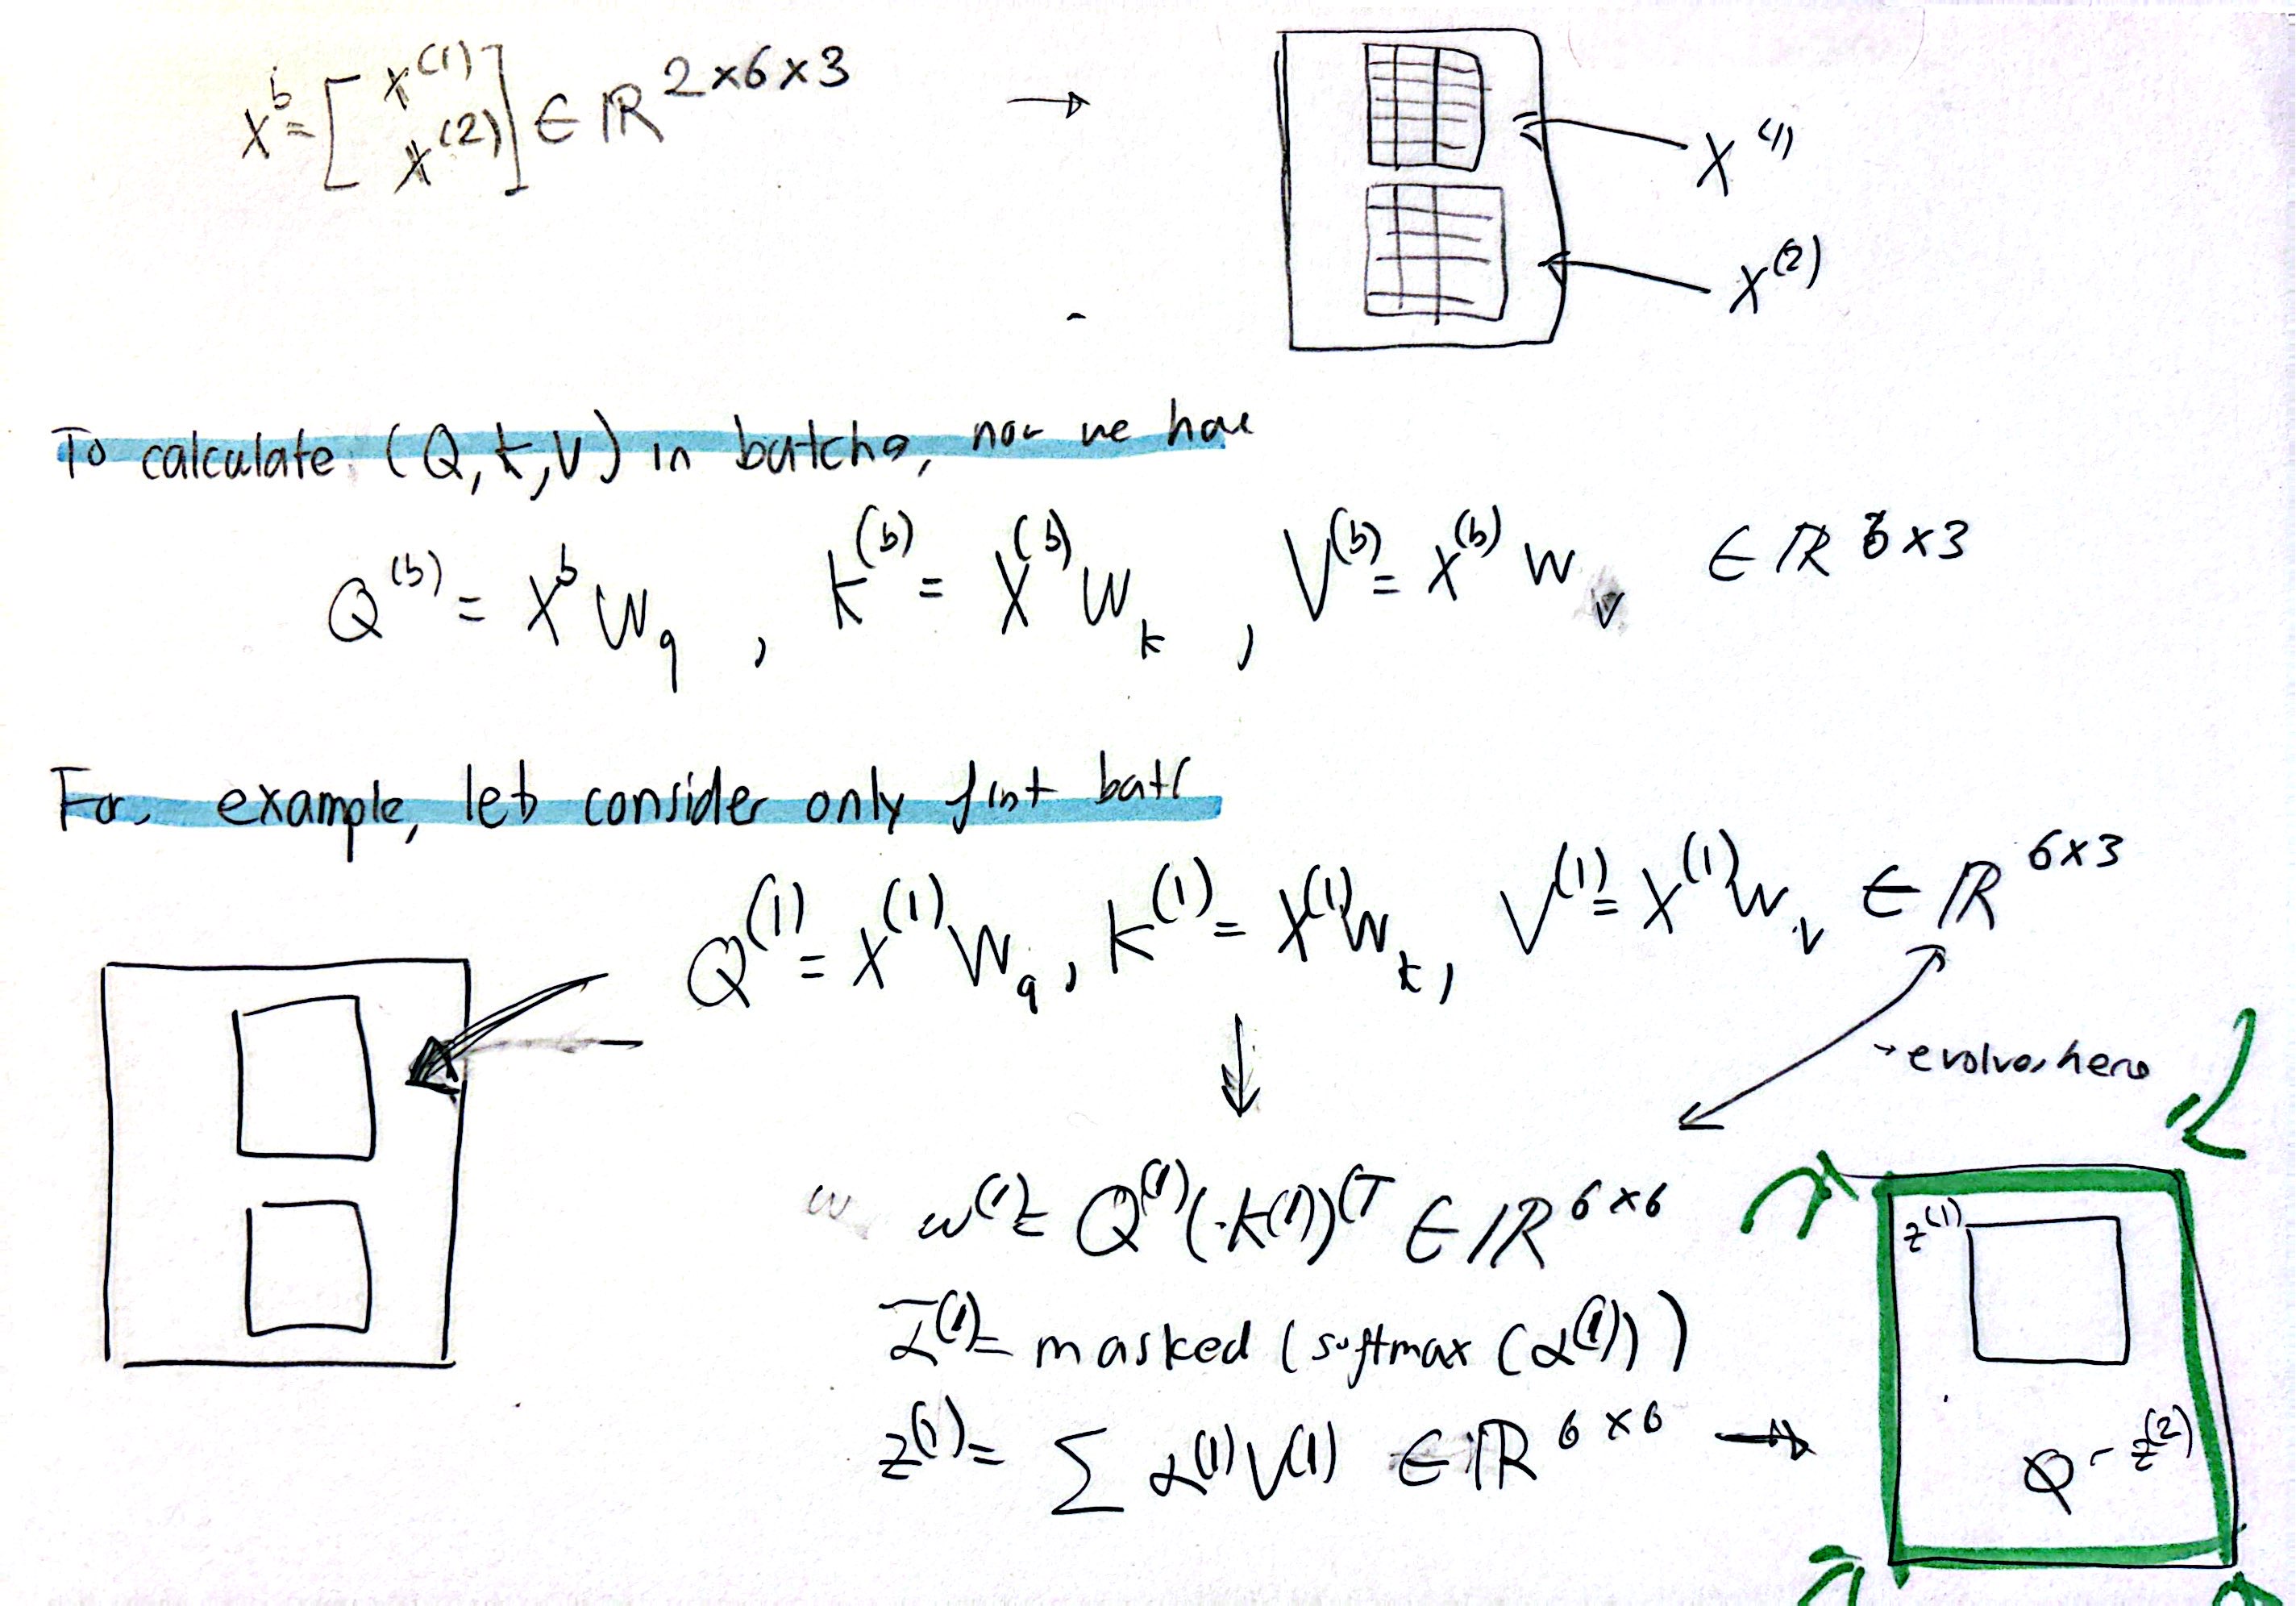 X^b = [ X^(1) X^(2) ] ∈ ℝ^2×6×3 →
X^(1)
X^(2)
To calculate (Q, K, V) in batches, now we have
Q^(b) = X^b W_q , K^(b) = X^(b) W_k , V^(b) = X^(b) W_v ∈ ℝ^6×3
For example, lets consider only first batc
Q^(1) = X^(1) W_q , K^(1) = X^(1) W_k , V^(1) = X^(1) W_v ∈ ℝ^6×3
→ evolves here
w^(1) = Q^(1) (·K^(1))^(T ∈ ℝ^6×6
z^(1)
α̅^(1) = masked (softmax (α^(1)))
z^(1) = Σ α^(1) V^(1) ∈ ℝ^6×6 →
z^(2)